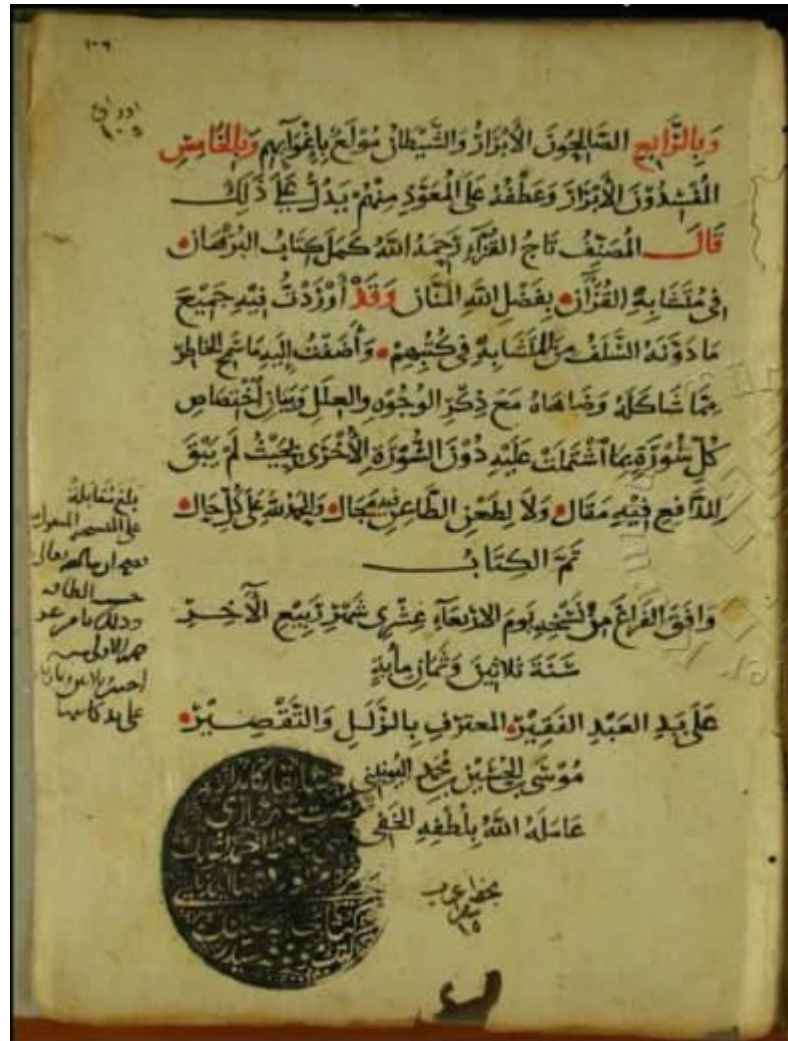 ١٠٦
اوراق
١٠٥
وَبِالرَّابِعِ الصَّالِحُونَ الأَبْرَارُ وَالشَّيْطَانُ مُوْلَعٌ بِإِغْوَآيِهِم وَبِالْخَامِسِ
الْمُفْسِدُوْنَ الأَبْرَارَ وَعَطْفُهُ عَلَى الْمُعَوَّذِ مِنْهُمْ يَدُلُّ عَلَى ذَلِكَ
قَالَ المُصَنِّفُ تَاجُ القُرَّآءِ رَحِمَهُ اللَّهُ كَمَلَ كِتَابُ البُرْهَانِ
فِي مُتَشَابِهِ القُرْآنِ بِفَضْلِ اللَّهِ المَنَّانِ وَقَدْ أَوْرَدْتُ فِيْهِ جَمِيْعَ
مَا دَوَّنَهُ السَّلَفُ مِنَ المُتَشَابِهِ فِي كُتُبِهِمْ وَأَضَفْتُ إِلَيْهِ مَا سَمَحَ الخَاطِرُ
مِمَّا شَاكَلَهُ وَضَاهَاهُ مَعَ ذِكْرِ الوُجُوْهِ وَالعِلَلِ وَبَيَانِ اخْتِصَاصِ
كُلِّ سُوْرَةٍ بِمَا اشْتَمَلَتْ عَلَيْهِ دُوْنَ السُّوْرَةِ الأُخْرَى بِحَيْثُ لَمْ يَبْقَ
لِلدَّافِعِ فِيْهِ مَقَالٌ وَلاَ لِطَعْنِ الطَّاعِنِ فِيْهِ مَجَالٌ وَالحَمْدُ لِلَّهِ عَلَى كُلِّ حَالٍ
تَمَّ الكِتَابُ
وَافَقَ الفَرَاغُ مِنْ نَسْخِهِ يَوْمَ الأَرْبِعَآءِ عِشْرِي شَهْرِ رَبِيْعِ الآخِرِ
سَنَةَ ثَلاَثِيْنَ وَثَمَانِ مِأَيَةٍ
عَلَى يَدِ العَبْدِ الفَقِيْرِ المعتَرفِ بِالزَّلَلِ وَالتَّقْصِيْرِ
مُوْسَى بن الحُسَيْنِ بن مُحَمَّدٍ اليونيني
عَامَلَهُ اللَّهُ بِلُطْفِهِ الخَفِي
بلغ مُقَابلةً
على
حسب الطاقه
وذلك
على يد كاتبها